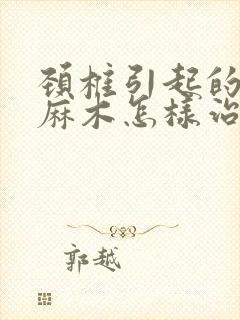 頸椎引起的
麻木怎樣治
郭越